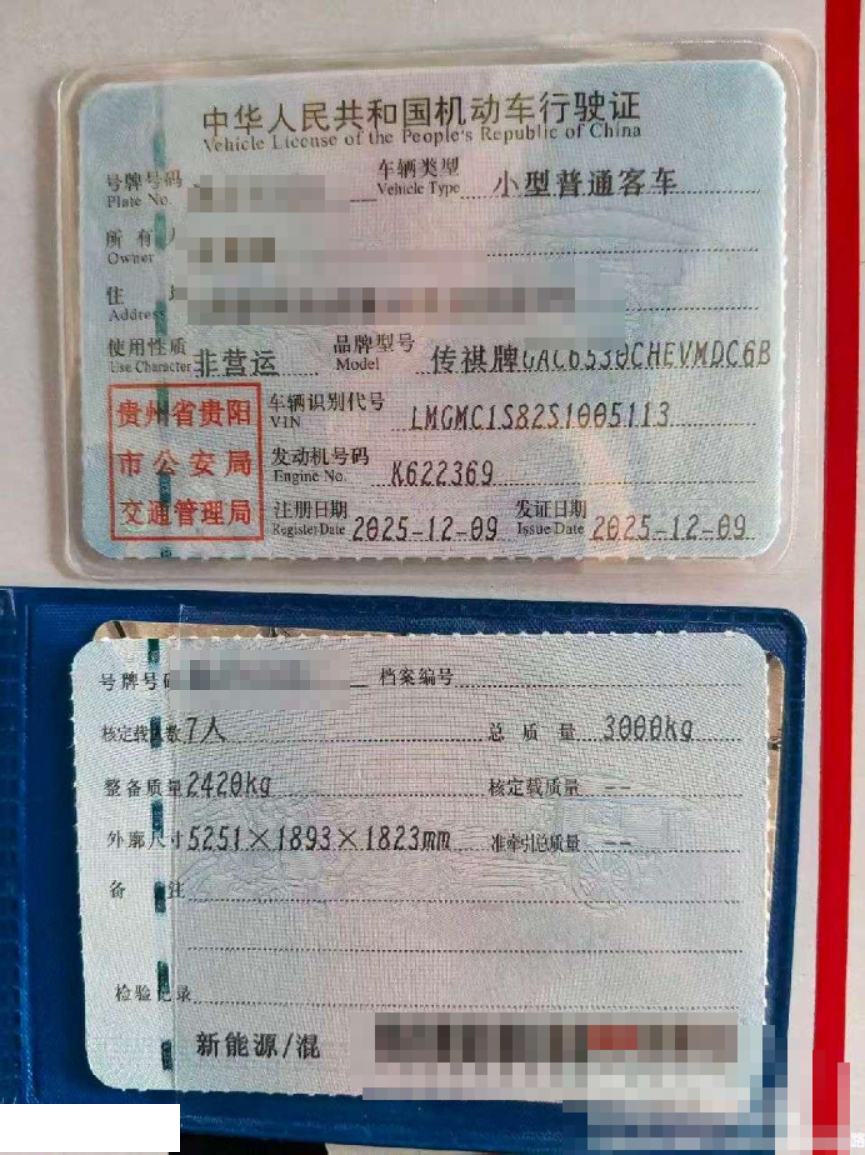 中华人民共和国机动车行驶证
Vehicle License of the People's Republic of China
号牌号码
Plate No.
车辆类型 小型普通客车
Vehicle Type
所有人
Owner
住址
Address
使用性质 非营运
Use Character
品牌型号 传祺牌GAC6530CHEVMDC6B
Model
贵州省贵阳
市公安局
交通管理局
车辆识别代号 LMGMC1S82S1005113
VIN
发动机号码 K622369
Engine No.
注册日期 2025-12-09
Register Date
发证日期 2025-12-09
Issue Date
号牌号码
档案编号
核定载人数 7人
总质量 3000kg
整备质量 2420kg
核定载质量 --
外廓尺寸 5251×1893×1823mm
准牵引总质量 --
备注
检验记录
新能源/混